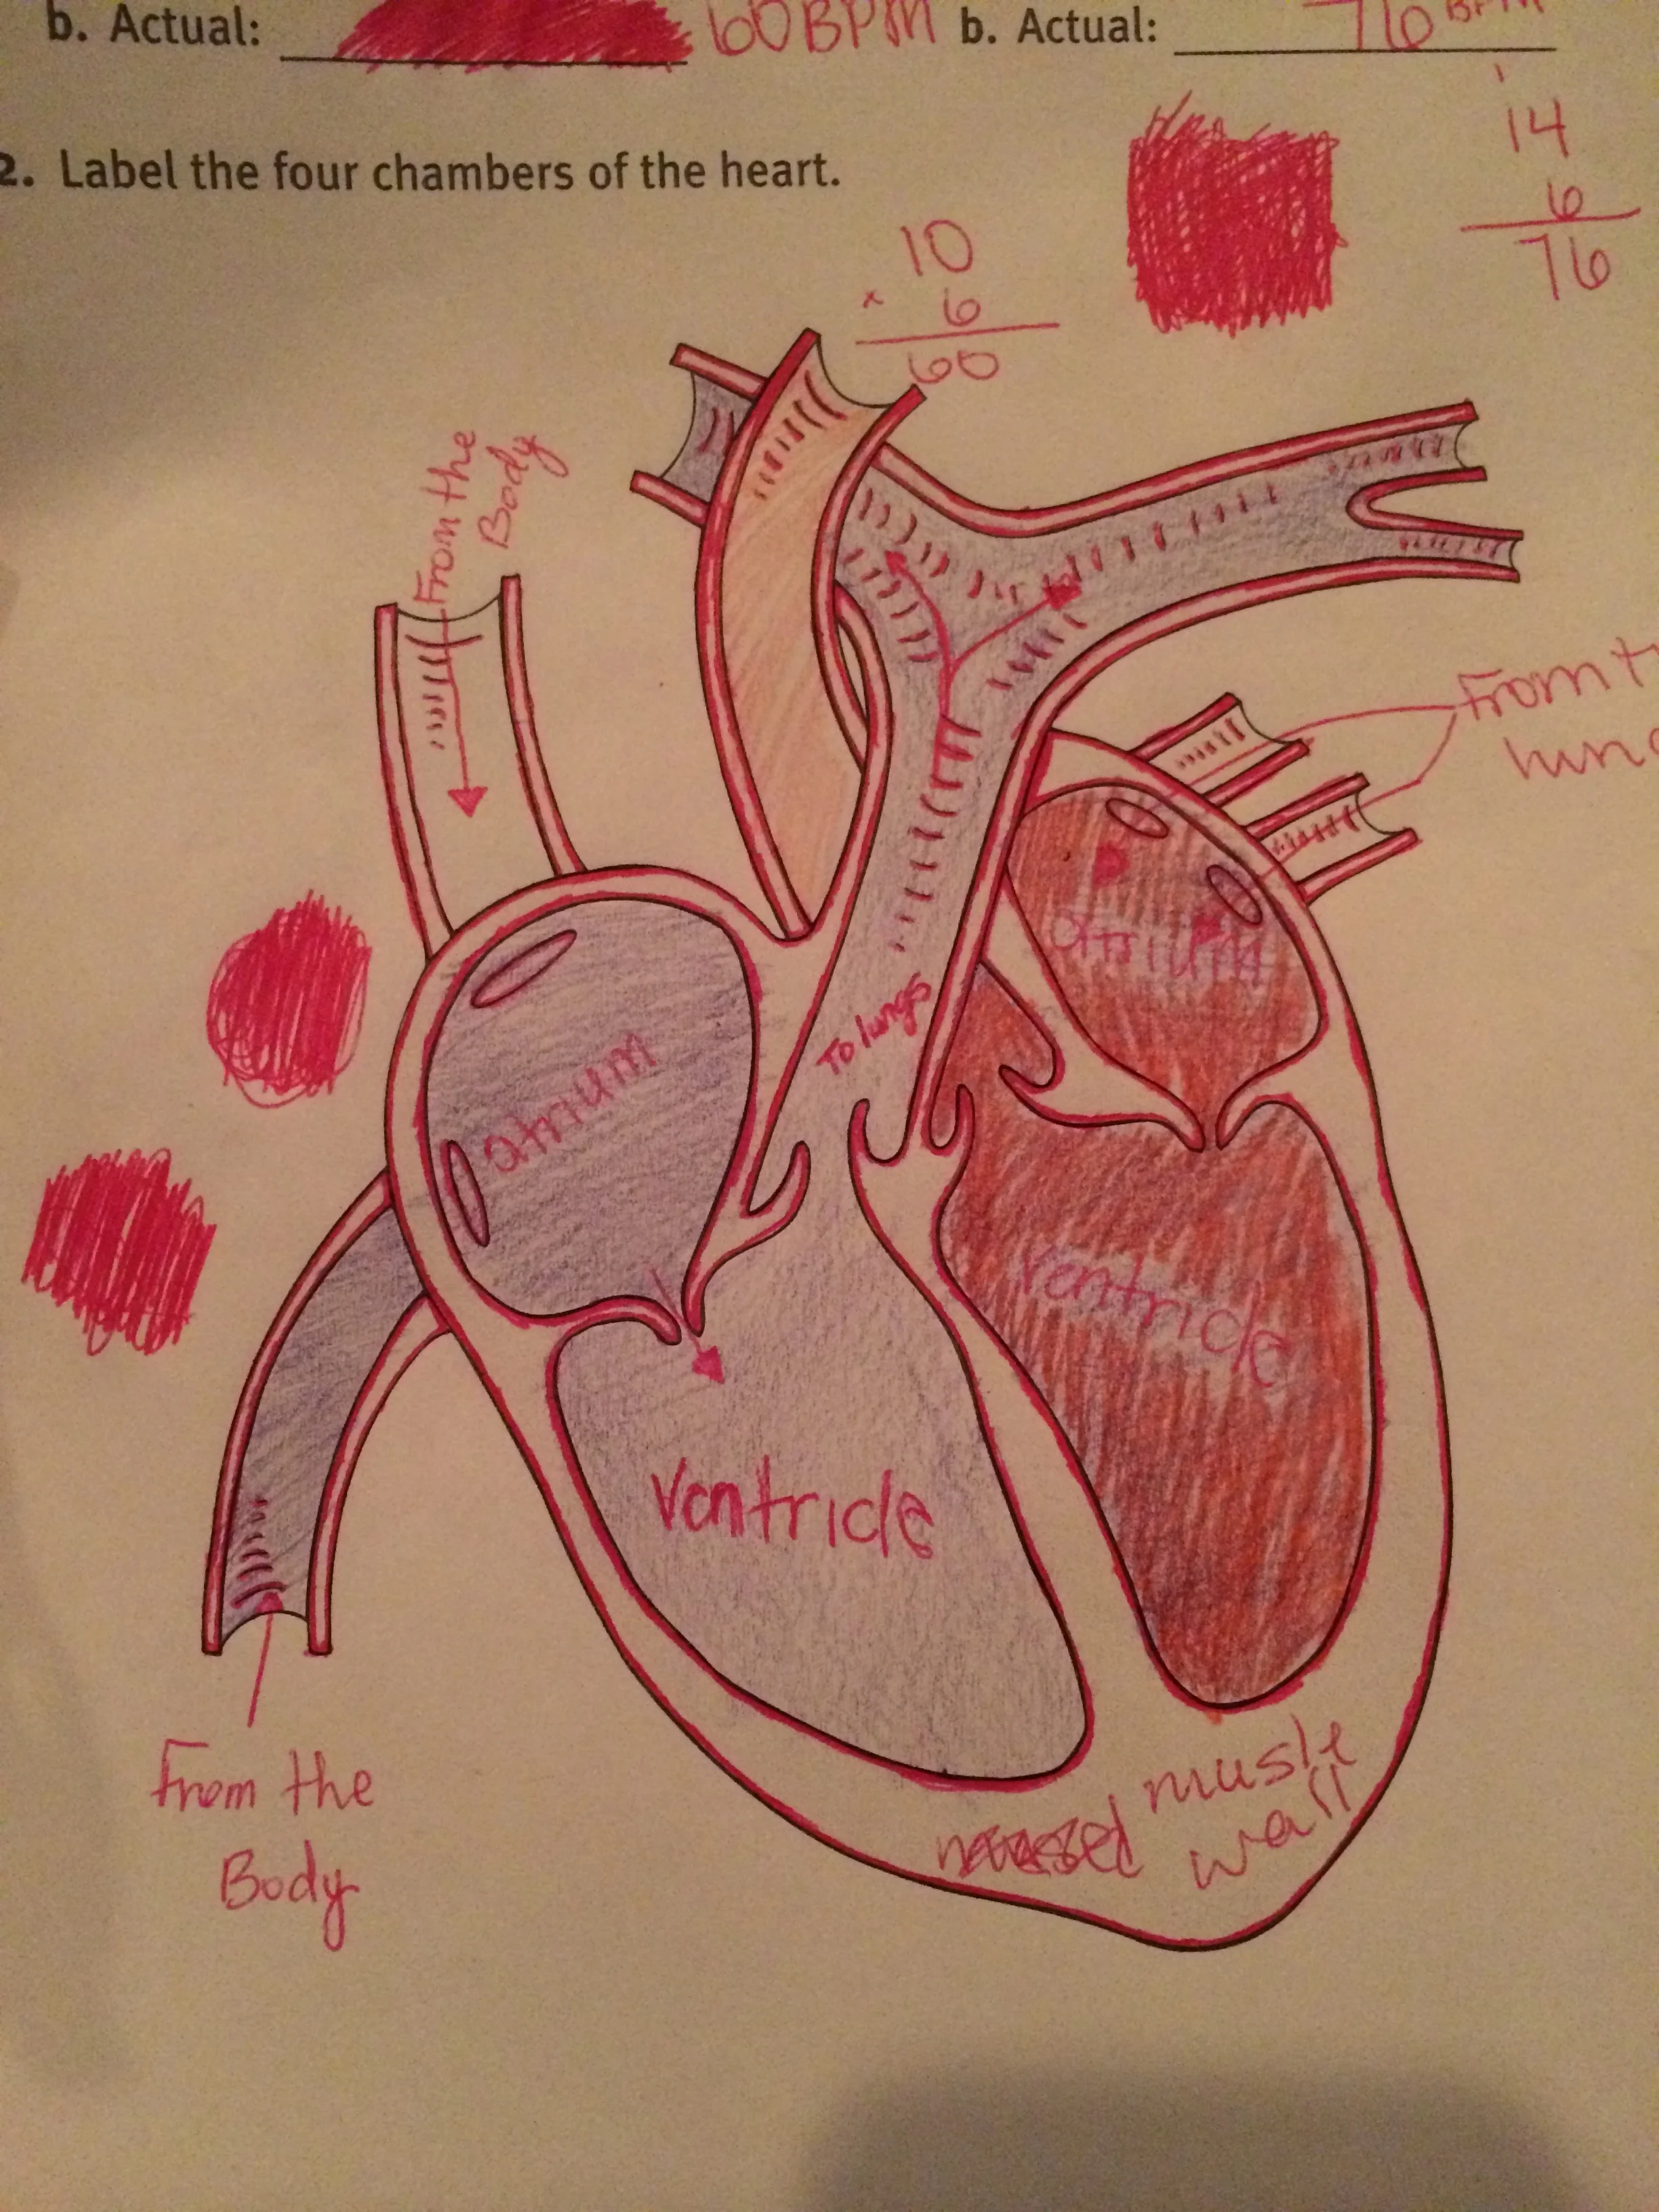 b. Actual: 60 BPM b. Actual: 76 BPM
2. Label the four chambers of the heart.
1
14
6
76
10
x 6
60
From the
Body
From
atrium
To lungs
atrium
ventricle
Ventricle
From the
Body
musle
wall